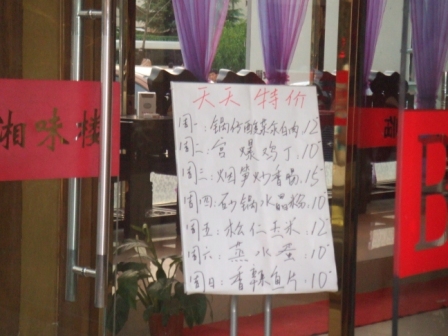 天天特价
周一:锅仔酸菜白肉.12
周二:宫爆鸡丁.10
周三:烟笋炒香肠.15
周四:砂锅水晶粉.10
周五:松仁玉米.12
周六:蒸水蛋.10
周日:香辣鱼片.10
湘味楼